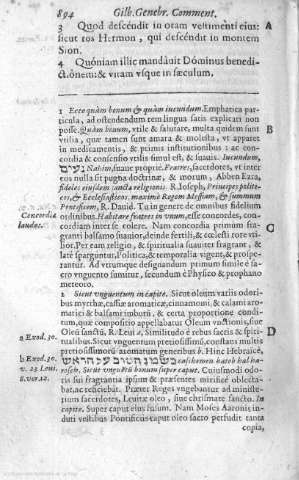 894 Gilb. Genebr. Comment.
3 Quod descéndit in oram vestimenti eius:
sicut ros Hermon, qui descéndit in montem
Sion.
4 Quóniam illic mandáuit Dóminus benedi-
ctionem: & vitam vsque in sæculum.
1 Ecce quàm bonum & quàm iucundum. Emphatica par-
ticula, ad ostendendum rem lingua satis explicari non
posse. Quàm bonum, vtile & salutare. multa quidem sunt
vtilia, quæ tamen sunt amara & molesta, vt apparet
in medicamentis, & primis institutionibus: at con-
cordia & consensio vtilis simul est, & suauis. Iucundum,
נעים Nahim, suaue propriè. Fratres, sacerdotes, vt inter
eos nulla sit pugna doctrinæ, & morum, Abben Ezra,
fideles eiusdem sancta religionis. R. Ioseph, Principes politi-
cos, & Ecclesiasticos, maximè Regem Messiam, & summum
Pontificem, R. Dauid. Tu in genere de omnibus fidelium
Concordia ordinibus. Habitare fratres in vnum, esse concordes, con-
laudes. C
cordiam inter se colere. Nam concordia primum fra-
granti balsamo suauior, deinde fertilis, & cœlesti rore vti-
lior. Per eam religio, & spiritualia suauiter fragrant, &
latè sparguntur, Politica, & temporalia vigent, & prospe-
rantur. Ad vtrumque designandum primùm similē sa-
cro vnguento sumitur, secundum è Physico & prophano
meteoro.
2 Sicut vnguentum in capite. Sicut oleum variis odori-
bus myrrhæ, cassiæ aromaticæ, cinnamomi, & calami aro-
matici & balsami imbuti, & certa proportione condi-
tum, quæ compositio appellabatur Oleum vnctionis, siue
Oleū sanctū, R. Leui. Similitudo è rebus sacris & spiri- D
a Exod. 30. tualibus. Sicut vnguentum sanctū, constans multis
pretiosissimorū aromatum generibus. Hinc Hebraicè,
b Exod. 30. כשמן הטוב על הראש caschemen hatob hal ha-
v. 23 Leui. rosch, Sicut vnguētū bonum super caput. Cuiusmodi odo-
8. ver. 12. ris sui fragrantia ipsum & præsentes mirificè oblecta-
bat, ac reficiebat. Præter Reges vngebantur ad ministe-
rium sacerdotes, Leuitæ oleo, siue chrismate sancto. In
capite. Super caput eius fusum. Nam Moses Aaronis in-
duti vestibus Pontificiis caput oleo sacro perfudit tanta
copia,